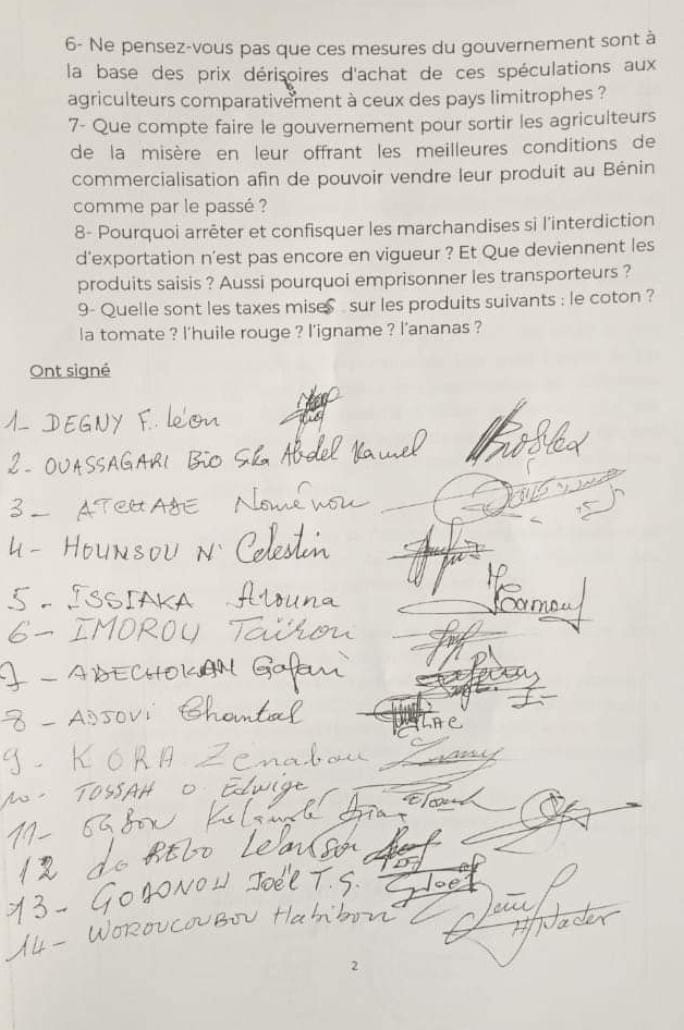 6- Ne pensez-vous pas que ces mesures du gouvernement sont à
la base des prix dérisoires d'achat de ces spéculations aux
agriculteurs comparativement à ceux des pays limitrophes ?
7- Que compte faire le gouvernement pour sortir les agriculteurs
de la misère en leur offrant les meilleures conditions de
commercialisation afin de pouvoir vendre leur produit au Bénin
comme par le passé ?
8- Pourquoi arrêter et confisquer les marchandises si l'interdiction
d'exportation n'est pas encore en vigueur ? Et Que deviennent les
produits saisis ? Aussi pourquoi emprisonner les transporteurs ?
9- Quelle sont les taxes mises sur les produits suivants : le coton ?
la tomate ? l'huile rouge ? l'igname ? l'ananas ?
Ont signé
1- DEGNY F. Léon
2- OUASSAGARI Bio Sika Abdel Kamel
3- ATCHADE Noménou
4- HOUNSOU N. Célestin
5- ISSIAKA Arouna
6- IMOROU Taïrou
7- ADECHOKAN Gafari
8- ADJOVI Chantal
9- KORA Zénabou
10- TOSSAH O Edwige
11- Kolawolé
12 do REGO
13- GODONOU Joël T. S.
14- WOROUCOUBOU Habibou
2